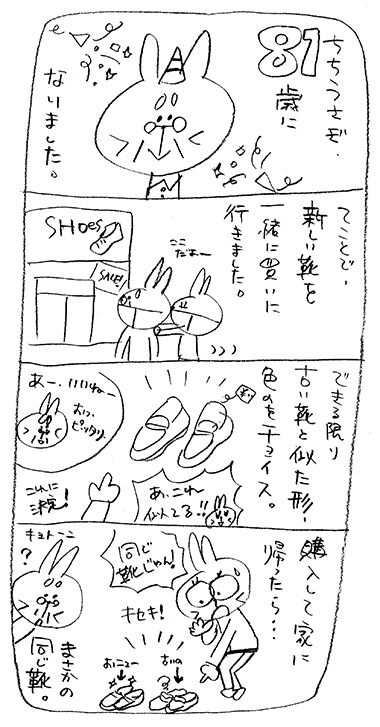 ちちうさぎ、
81歳に
なりました。
てことで、
新しい靴を
一緒に買いに
行きました。
SHOES
SALE!
ここ
だぁー
できる限り
古い靴と似た形、
色のをチョイス。
あ、これ
似てる!!
あー、いいねー
おっ、
ピッタリ
これに
決定!
購入して家に
帰ったら…
同じ
靴じゃん!
キセキ!
おニュー
キョトーン
?
まさかの
同じ靴。